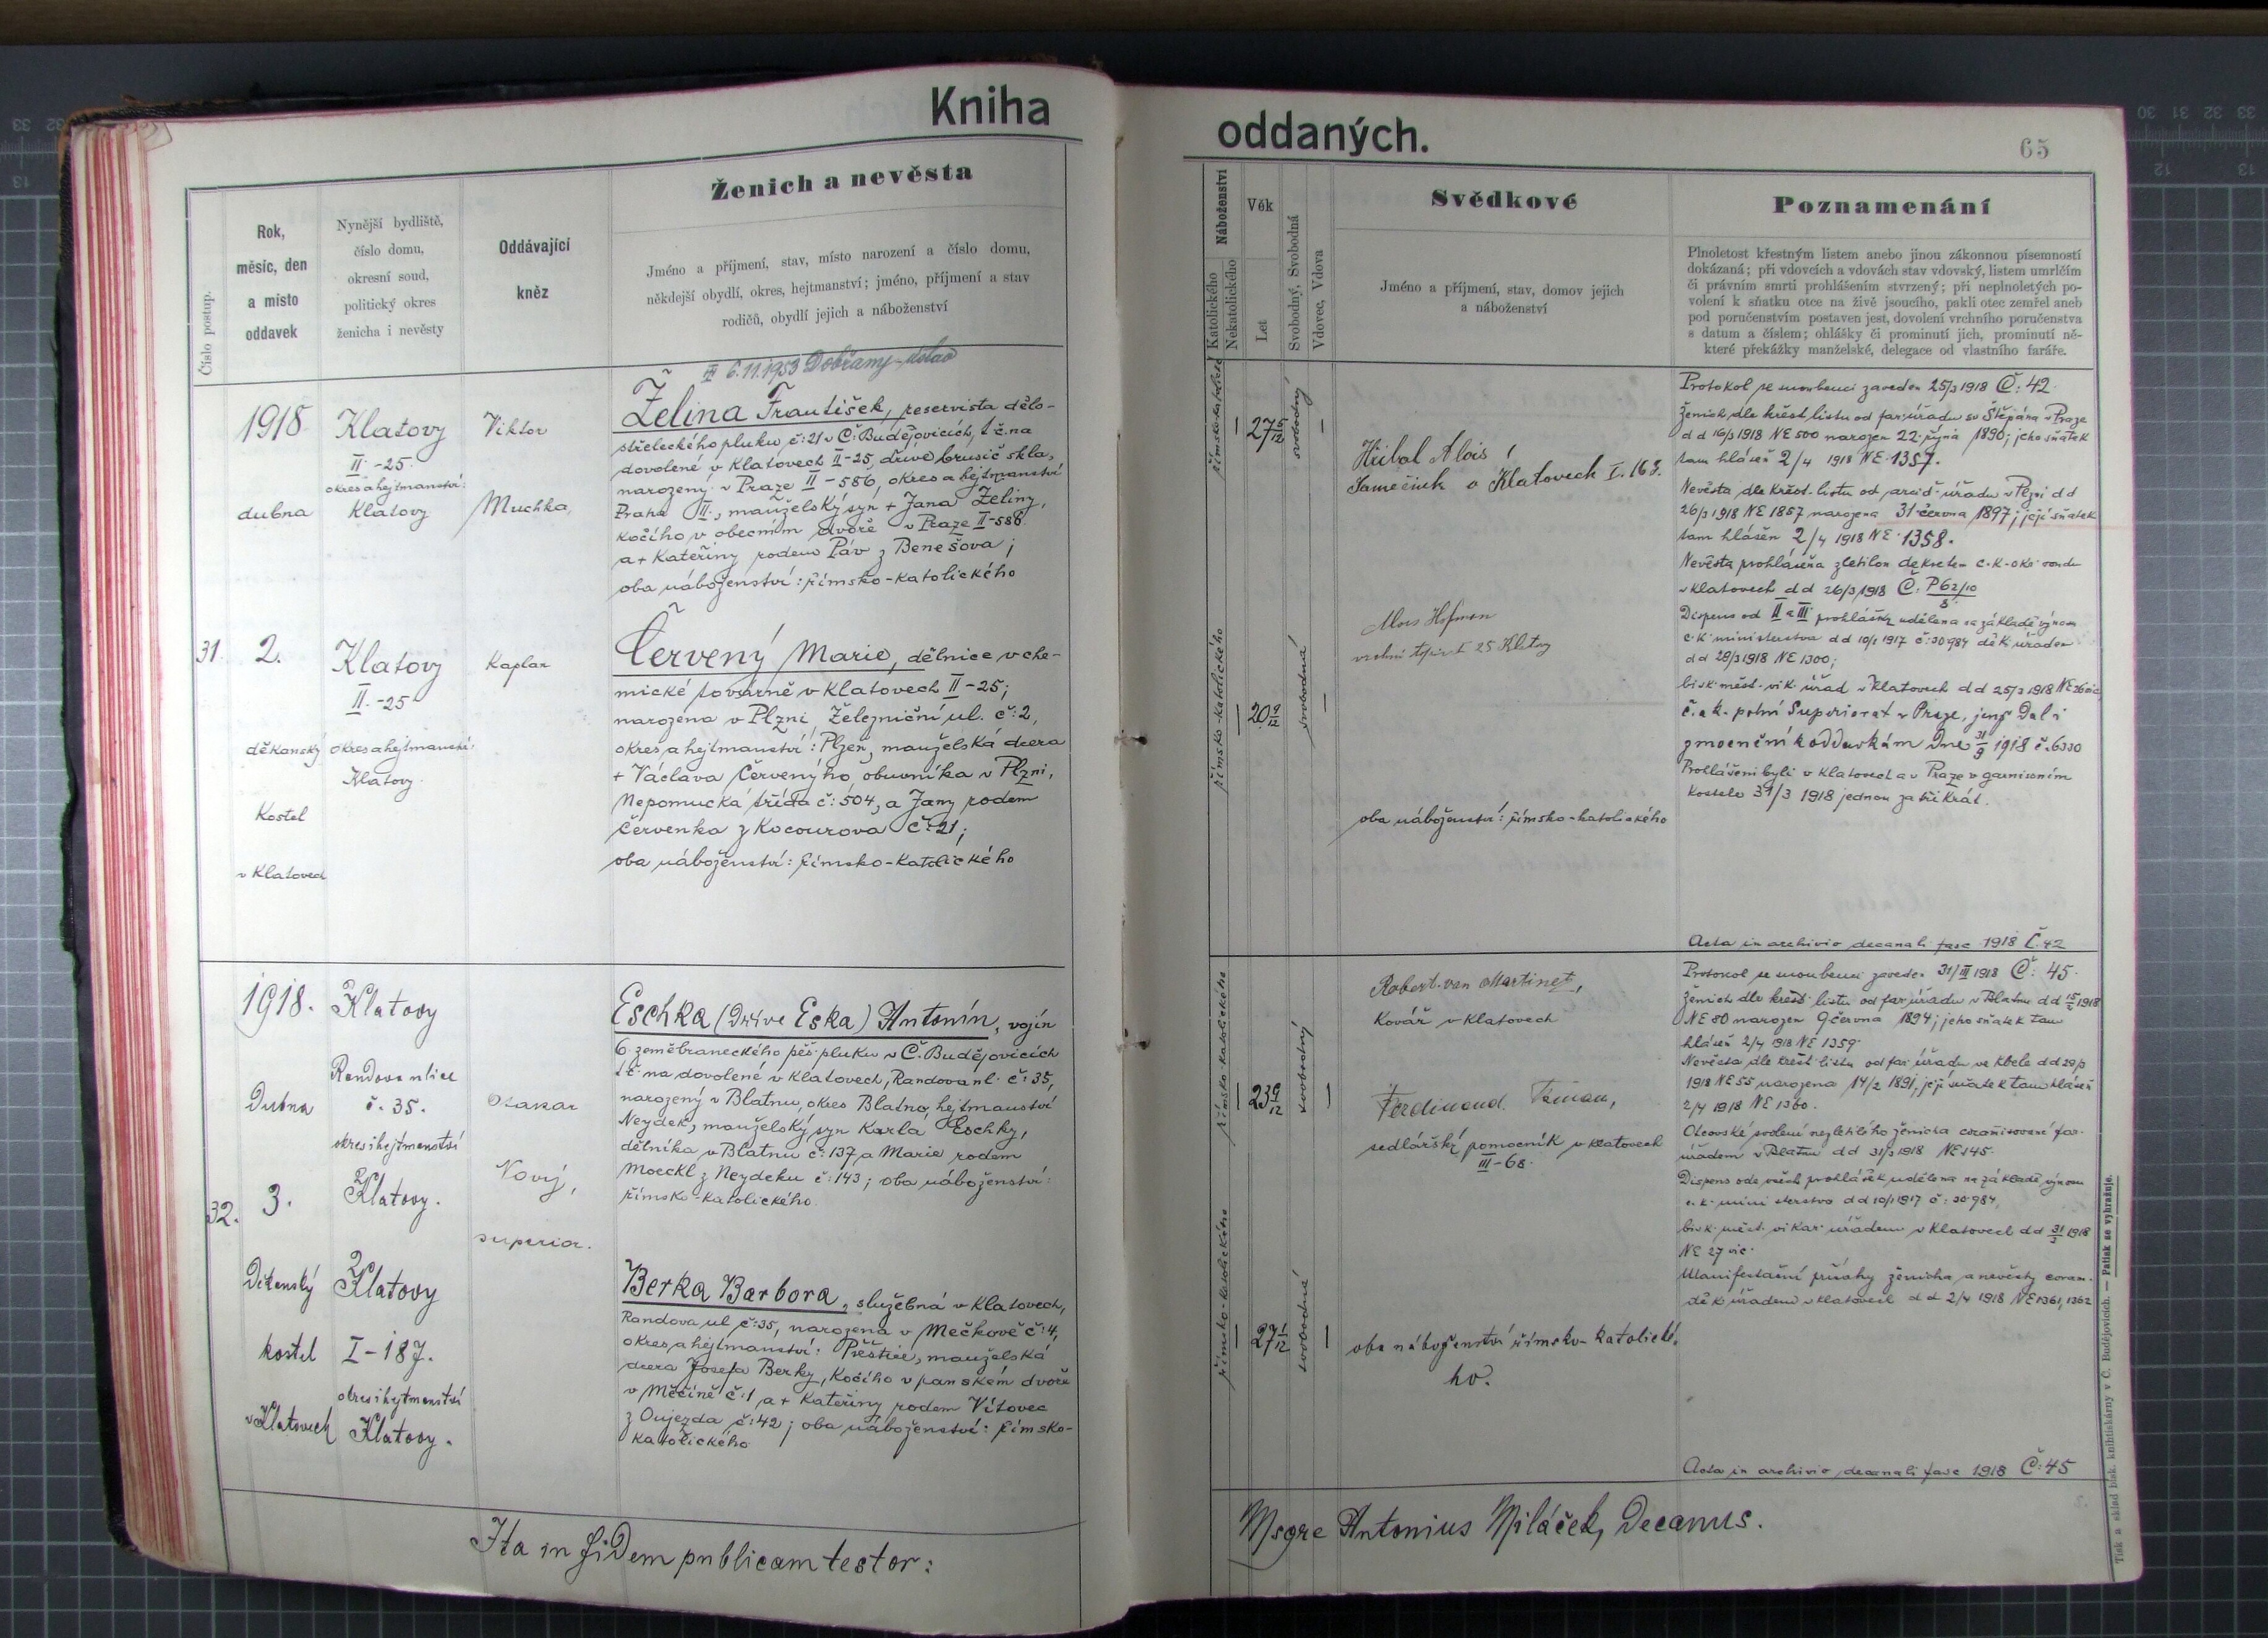 Kniha
oddaných.
65
Číslo postup.
Rok,
měsíc, den
a místo
oddavek
Nynější bydliště,
číslo domu,
okresní soud,
politický okres
ženicha i nevěsty
Oddávající
kněz
Ženich a nevěsta
Jméno a příjmení, stav, místo narození a číslo domu,
někdejší obydlí, okres, hejtmanství; jméno, příjmení a stav
rodičů, obydlí jejich a náboženství
Náboženství
Katolického
Nekatolického
Věk
Let
Svobodný, Svobodná
Vdovec, Vdova
Svědkové
Jméno a příjmení, stav, domov jejich
a náboženství
Poznamenání
Plnoletost křestným listem anebo jinou zákonnou písemností
dokázaná; při vdovcích a vdovách stav vdovský, listem umrlčím
či právním smrti prohlášením stvrzený; při neplnoletých po-
volení k sňatku otce na živě jsoucího, pakli otec zemřel aneb
pod poručenstvím postaven jest, dovolení vrchního poručenstva
s datum a číslem; ohlášky či prominutí jich, prominutí ně-
které překážky manželské, delegace od vlastního faráře.
31.
1918
dubna
2.
děkanský
Kostel
v Klatovech
Klatovy
II.-25.
okres a hejtmanství:
Klatovy
Klatovy
II.-25
okres a hejtmanství:
Klatovy.
Viktor
Muchka,
Kaplan
6.11.1953 Dobřany
Želina František, reservista dělo-
střeleckého pluku č:21 v Č. Budějovicích, t.č. na
dovolené v Klatovech II-25, dříve brusič skla,
narozený v Praze II-586, okres a hejtmanství
Praha II., manželský syn + Jana Želiny,
kočího v obecním dvoře v Praze II-586.
a + Kateřiny rodem Páv z Benešova;
oba náboženství: římsko-katolického
Červený Marie, dělnice v che-
mické továrně v Klatovech II-25;
narozena v Plzni, Železniční ul. č:2,
okres a hejtmanství: Plzeň, manželská dcera
+ Václava Červenýho, obuvníka v Plzni,
Nepomucká třída č:504, a Jany rodem
Červenka z Kocourova č:21;
oba náboženství: římsko-katolického
římsko-katolického
27 5/12
svobodný
římsko-katolického
20 9/12
svobodná
Hřibal Alois,
v Klatovech I. 163.
Alois Hofman
I 25 Klatovy
oba náboženství: římsko-katolického
Protokol se snoubenci zaveden 25/3 1918 Č: 42
Ženich dle křest. listu od far. úřadu sv Štěpána v Praze
d d 16/3 1918 NE 500 narozen 22. října 1890; jeho sňatek
tam hlášen 2/4 1918 NE 1357.
Nevěsta dle křest. listu od arcid. úřadu v Plzni d d
26/3 1918 NE 1857 narozena 31 června 1897; její sňatek
tam hlášen 2/4 1918 NE 1358.
Nevěsta prohlášena zletilou dekretem c.k. okr. soudu
v Klatovech d d 26/3 1918 Č: P 62/10
8.
Dispens od II a III prohlášky udělena na základě výnosu
c.k. ministerstva d d 10/1 1917 č:30984 děk. úřadem
d d 28/3 1918 NE 1300;
bisk. měst. vik. úřad v Klatovech d d 25/3 1918 NE 26 vic
c. a k. polní Superiorat v Praze, jenž dal i
zmocnění k oddavkám dne 31/3 1918 č. 6330
Prohlášeni byli v Klatovech a v Praze v garnisoním
kostele 31/3 1918 jednou za třikrát.
Acta in archivio decanali fasc 1918 Č. 42
32.
1918.
Dubna
3.
Děkanský
kostel
v Klatovech
Klatovy
Randova ulice
č. 35.
okres i hejtmanství
Klatovy.
Klatovy
I-187.
okres i hejtmanství
Klatovy.
Otakar
Nový,
superior.
Eschka (Dříve Eska) Antonín, vojín
6. zeměbraneckého pěš. pluku v Č. Budějovicích
t č. na dovolené v Klatovech, Randova ul. č:35,
narozený v Blatnu, okres Blatno, hejtmanství
Neydek, manželský syn Karla Eschky,
dělníka v Blatnu č:137 a Marie rodem
Moeckl z Neydeku č:143; oba náboženství:
římsko-katolického.
Berka Barbora, služebná v Klatovech,
Randova ul č:35, narozena v Mečkově č:4,
okres a hejtmanství: Přeštice, manželská
dcera Josefa Berky, kočího v panském dvoře
v Měčíně č:1 a + Kateřiny rodem Vítovec
z Oujezda č:42; oba náboženství: římsko-
katolického
římsko-katolického
23 9/12
svobodný
římsko-katolického
27 1/12
svobodná
Robert van Martinet,
Kovář v Klatovech
Ferdinand
sedlářský pomocník v Klatovech
III-68.
oba náboženství římsko-katolické-
ho.
Protokol se snoubenci zaveden 31/III 1918 Č: 45.
Ženich dle křest. listu od far. úřadu v Blatnu d d 15/2 1918
NE 80 narozen 9 června 1894; jeho sňatek tam
hlášen 2/4 1918 NE 1359.
Nevěsta dle křest. listu od far. úřadu ve Kbele d d 29/3
1918 NE 55 narozena 14/2 1891, její sňatek tam hlášen
2/4 1918 NE 1360.
Otcovské svolení nezletilého ženicha coramisované far.
úřadem v Blatnu d d 31/3 1918 NE 145.
Dispens ode všech prohlášek udělena na základě výnosu
c. k. ministerstva d d 10/1 1917 č: 30.984,
bisk. měst. vikar. úřadem v Klatovech d d 31/3 1918
NE 27 vic.
Manifestační přísahy ženicha a nevěsty coram.
děk úřadem v Klatovech d d 2/4 1918 NE 1361, 1362
Acta in archivio decanali fasc 1918 Č: 45
Ita in fidem publicam testor:
Msgre Antonius Miláček, Decanus.
Tisk a sklad bisk. knihtiskárny v Č. Budějovicích. — Patisk se vyhražuje.